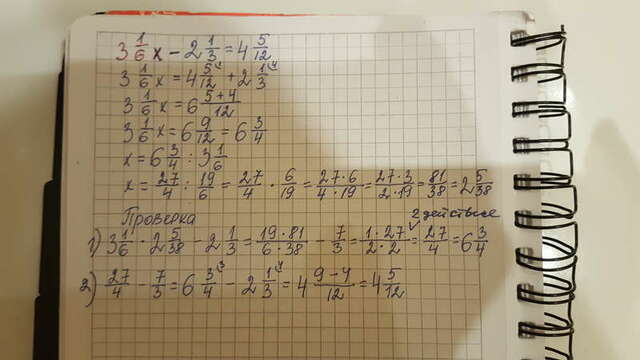 3 1/6 x - 2 1/3 = 4 5/12
3 1/6 x = 4 5/12 + 2 1/3 \4
3 1/6 x = 6 5+4/12
3 1/6 x = 6 9/12 = 6 3/4
x = 6 3/4 : 3 1/6
x = 27/4 : 19/6 = 27/4 · 6/19 = 27·6/4·19 = 27·3/2·19 = 81/38 = 2 5/38
Проверка
2 действие
1) 3 1/6 · 2 5/38 - 2 1/3 = 19·81/6·38 - 7/3 = 1·27/2·2 = 27/4 = 6 3/4
2) 27/4 - 7/3 = 6 3/4 \3 - 2 1/3 \4 = 4 9-4/12 = 4 5/12